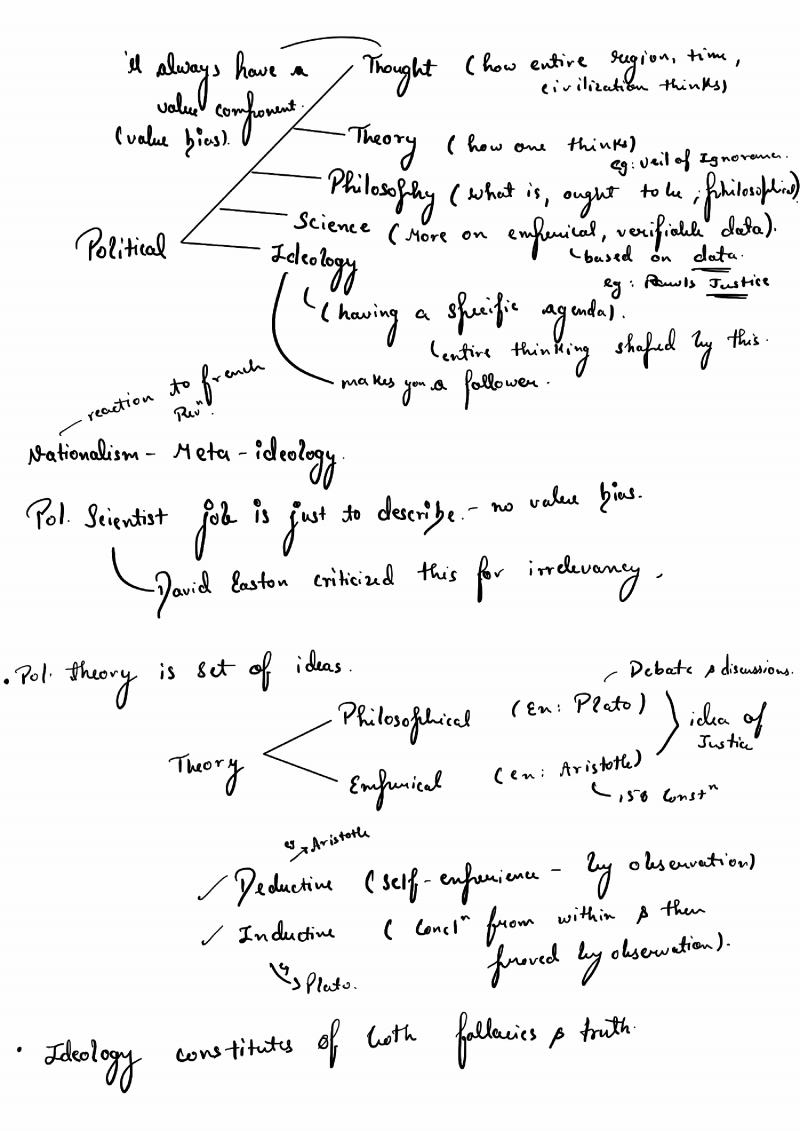 'll always have a
value component.
(value bias).
Thought (how entire region, time,
civilization thinks)
Theory (how one thinks)
eg: veil of Ignorance.
Philosophy (what is, ought to be; philosophical)
Science (More on empirical, verifiable data).
based on data.
Political
Ideology
eg: Rawls Justice
(having a specific agenda).
entire thinking shaped by this.
makes you a follower.
reaction to french
Revⁿ.
Nationalism - Meta-ideology.
Pol. Scientist job is just to describe. - no value bias.
David Easton criticized this for irrelevancy.
• Pol. theory is set of ideas.
Debate & discussions.
Philosophical (Ex: Plato)
idea of
Justice
Theory
Empirical (ex: Aristotle)
158 Constⁿ
Aristotle
✓ Deductive (self-experience - by observation)
✓ Inductive (Conclⁿ from within & then
proved by observation).
Plato.
• Ideology constitutes of both fallacies & truth.